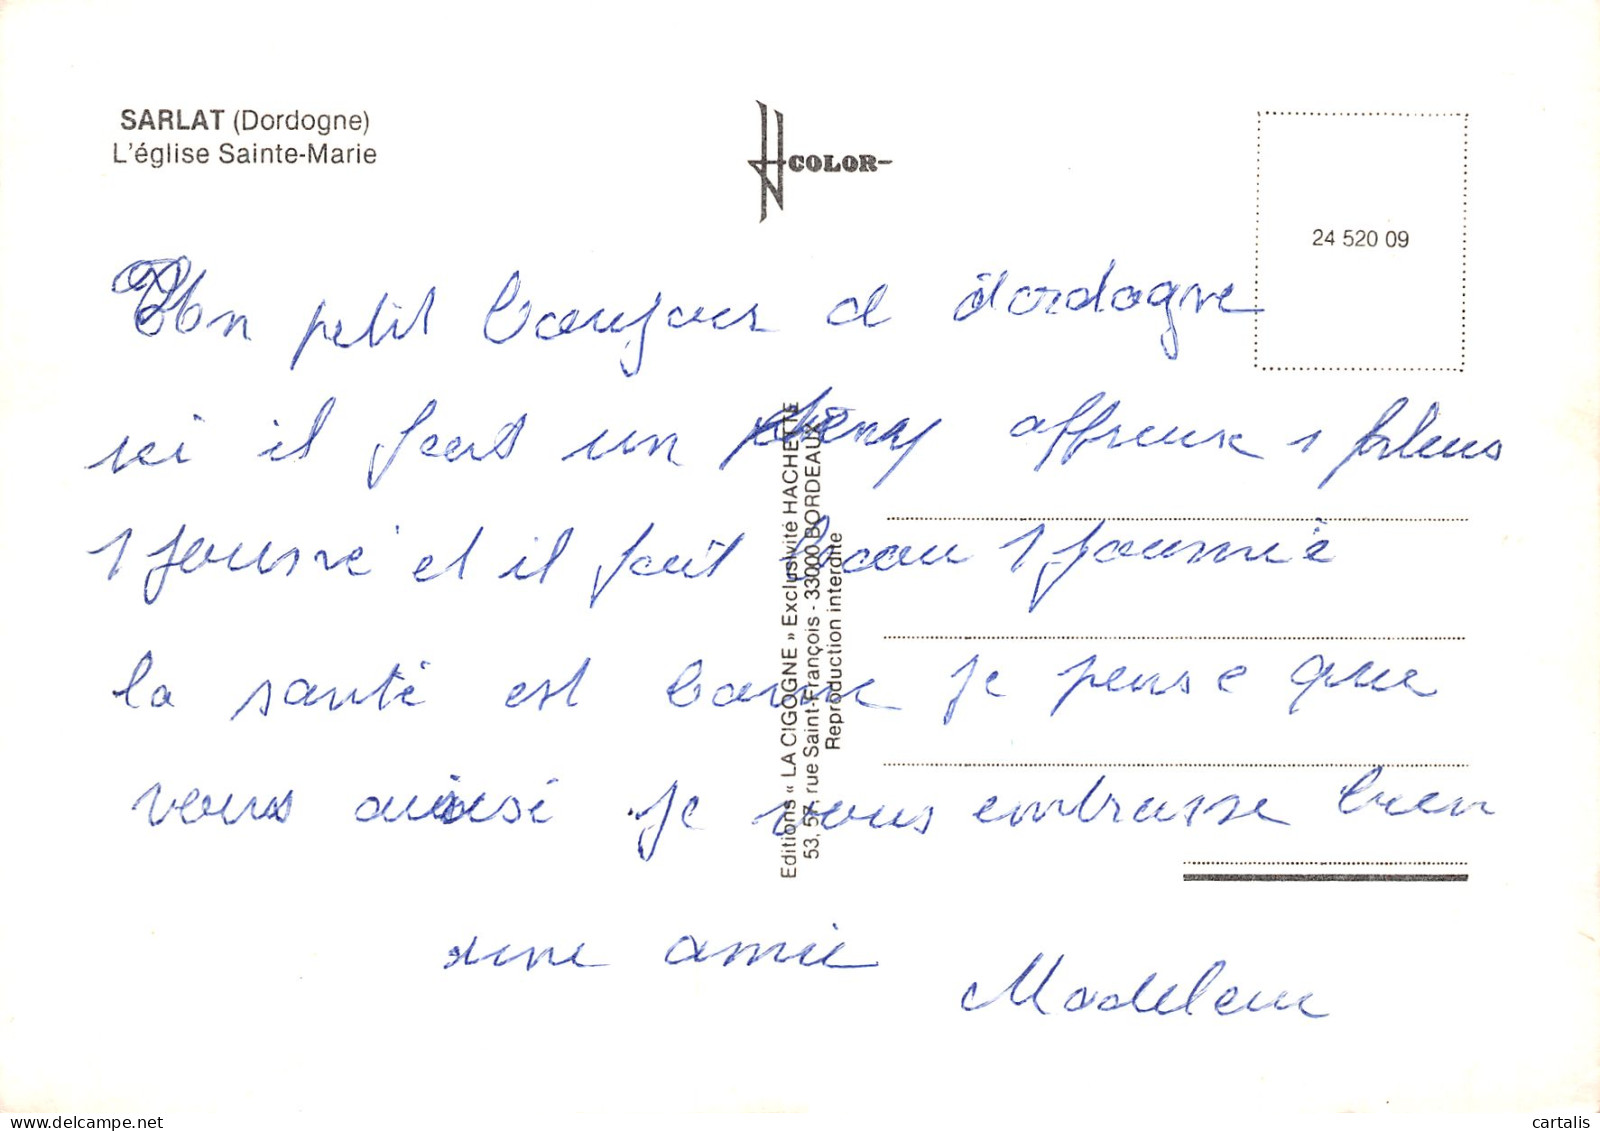 SARLAT (Dordogne)
L'église Sainte-Marie
COLOR
24 520 09
Un petit bonjour d dordogne
ici il fait un affreux 1 pleus
1 journé et il fait beau 1 journié
la santé est bonne je pense que
vous ausi je vous embrasse bien
une amie
Madeleine
Editions « LA CIGOGNE » Exclusivité HACHETTE
53, 57, rue Saint-François - 33000 BORDEAUX
Reproduction interdite
cartalis